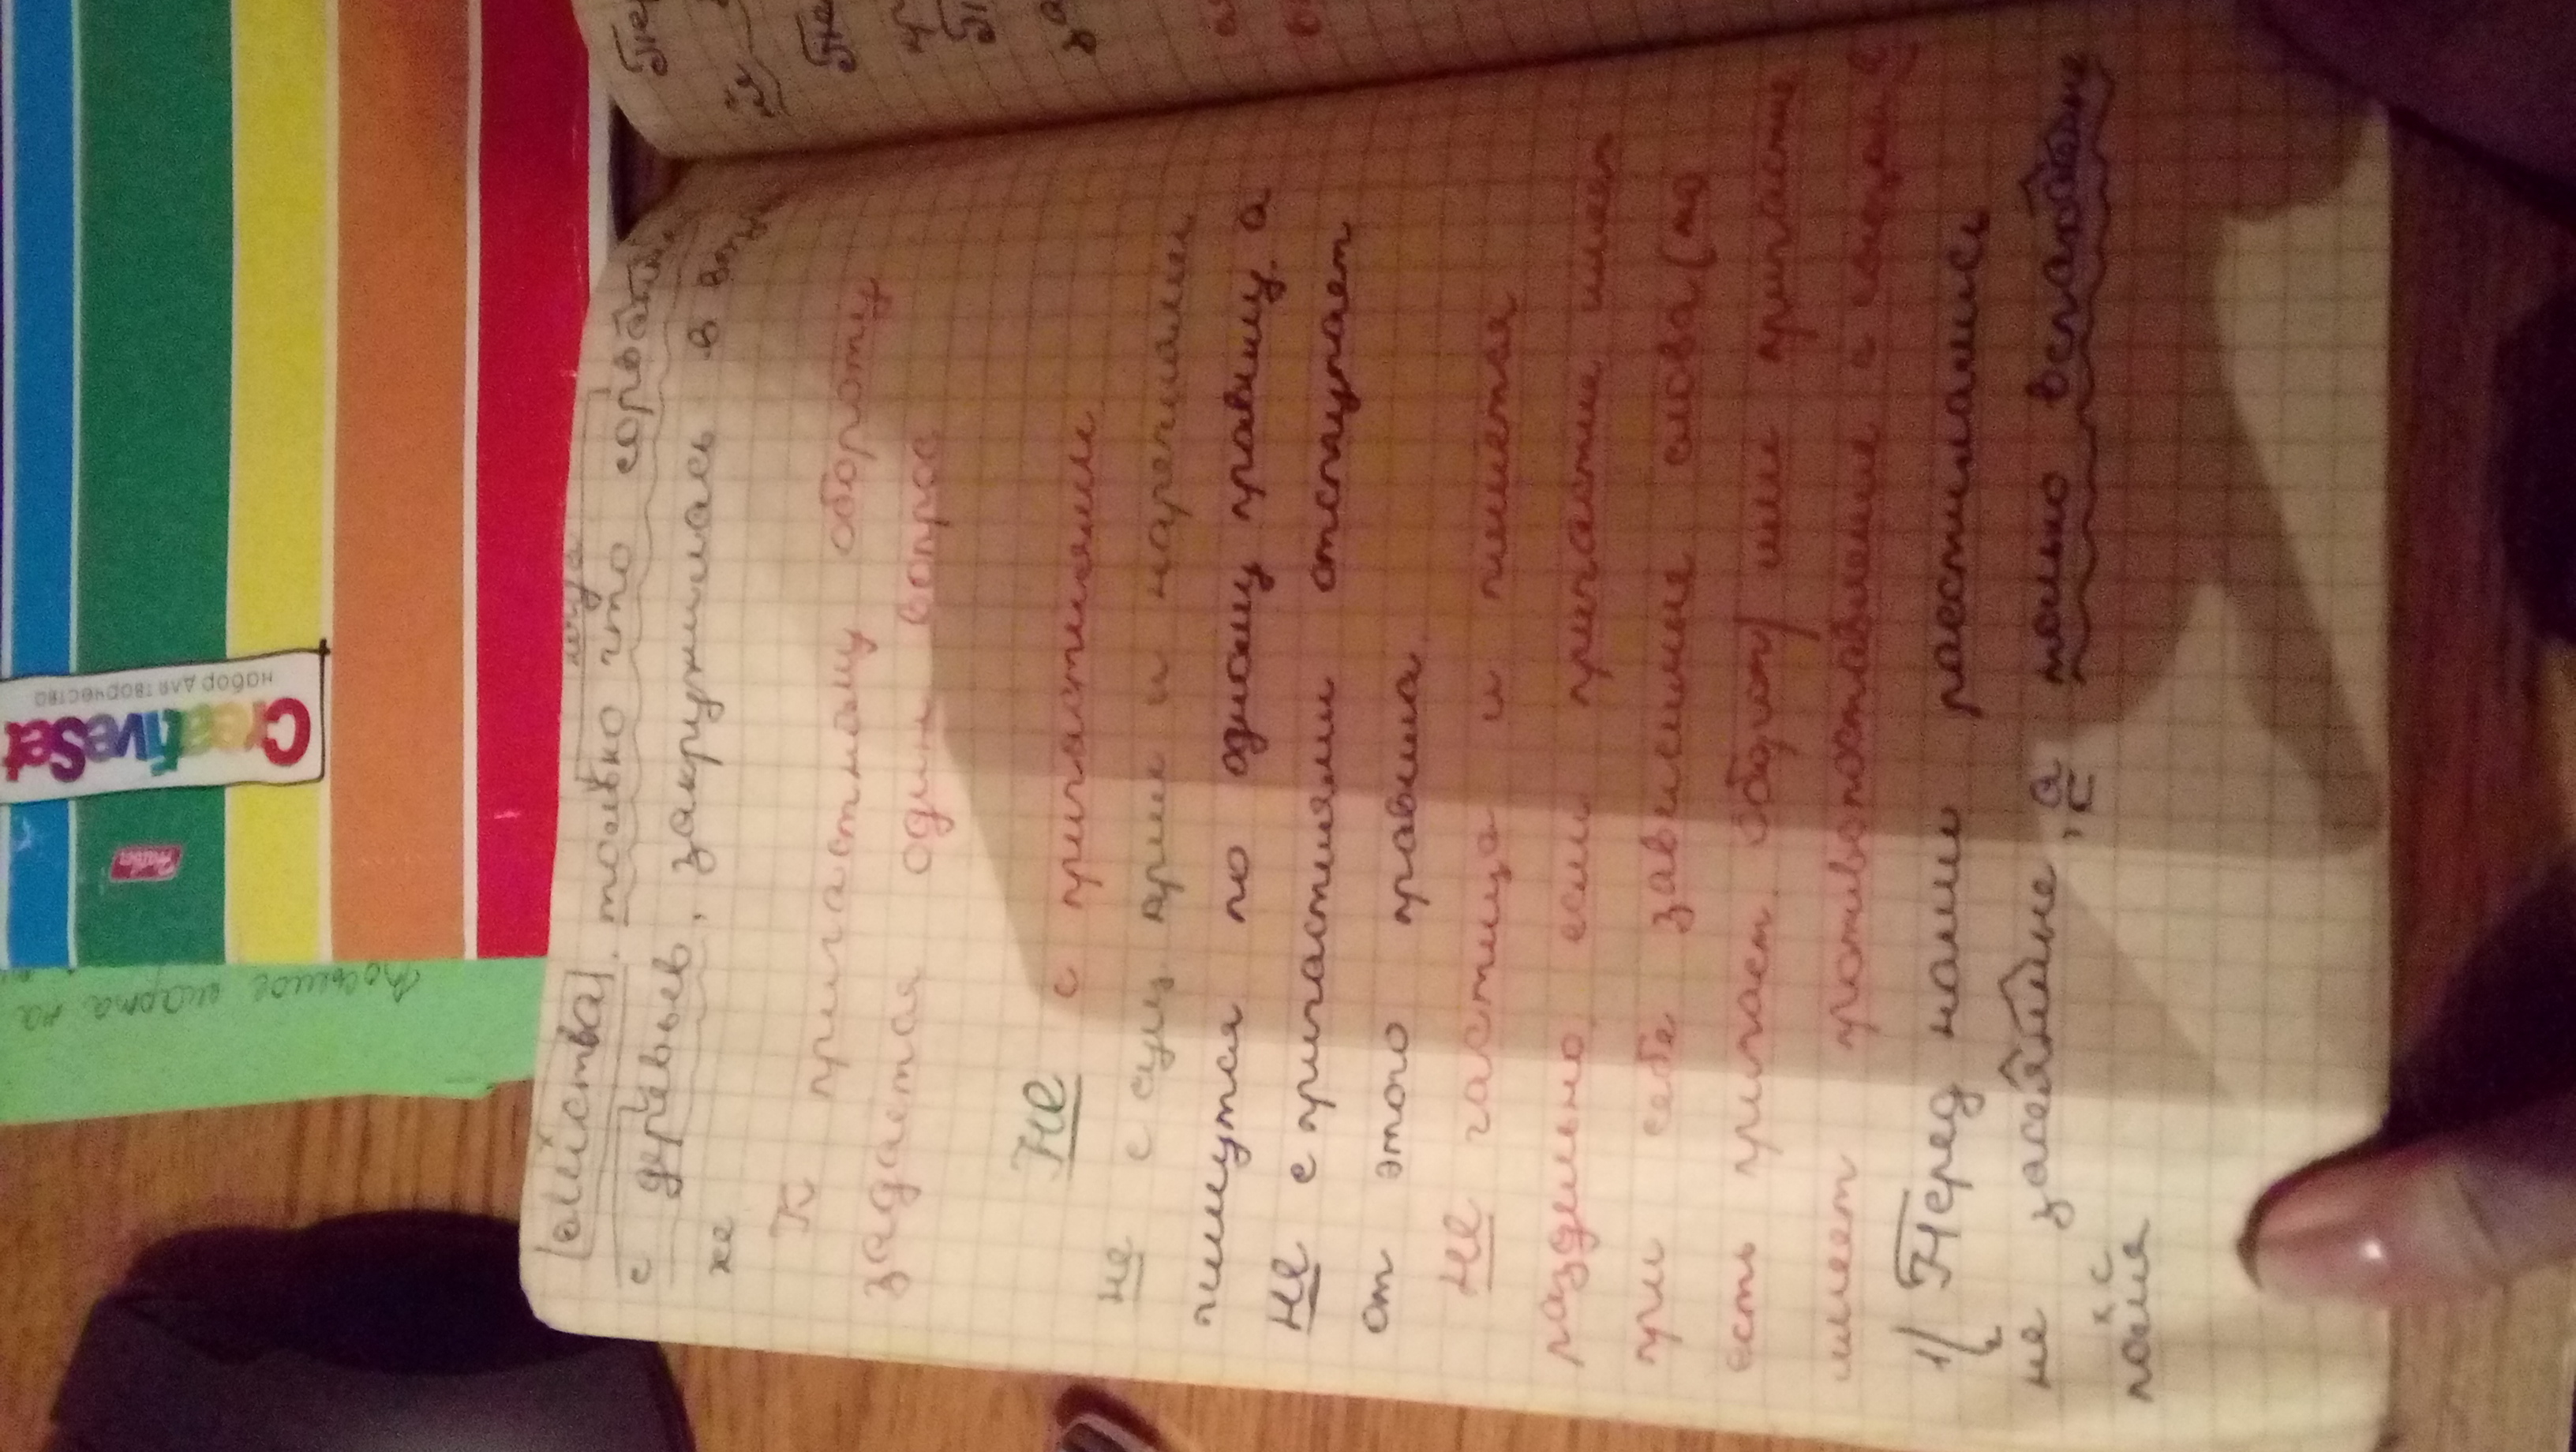 листва, только что сорван
с деревьев, закружилась в возду
хе
К причастному обороту
задается один вопрос
Не с причастиями
Не с сущ. прил и наречиями
пишутся по одному правилу. а
Не с причастиями отступает
от этого правила.
Не частица и пишется
раздельно, если причастие имеет
при себе зависимые слова (то
есть причаст. оборот) или причастие
имеет противопоставление с союзом
1) Перед нами расстилались
не засеянные, а только вспаханные
поля
CreativeSet
набор для творчества